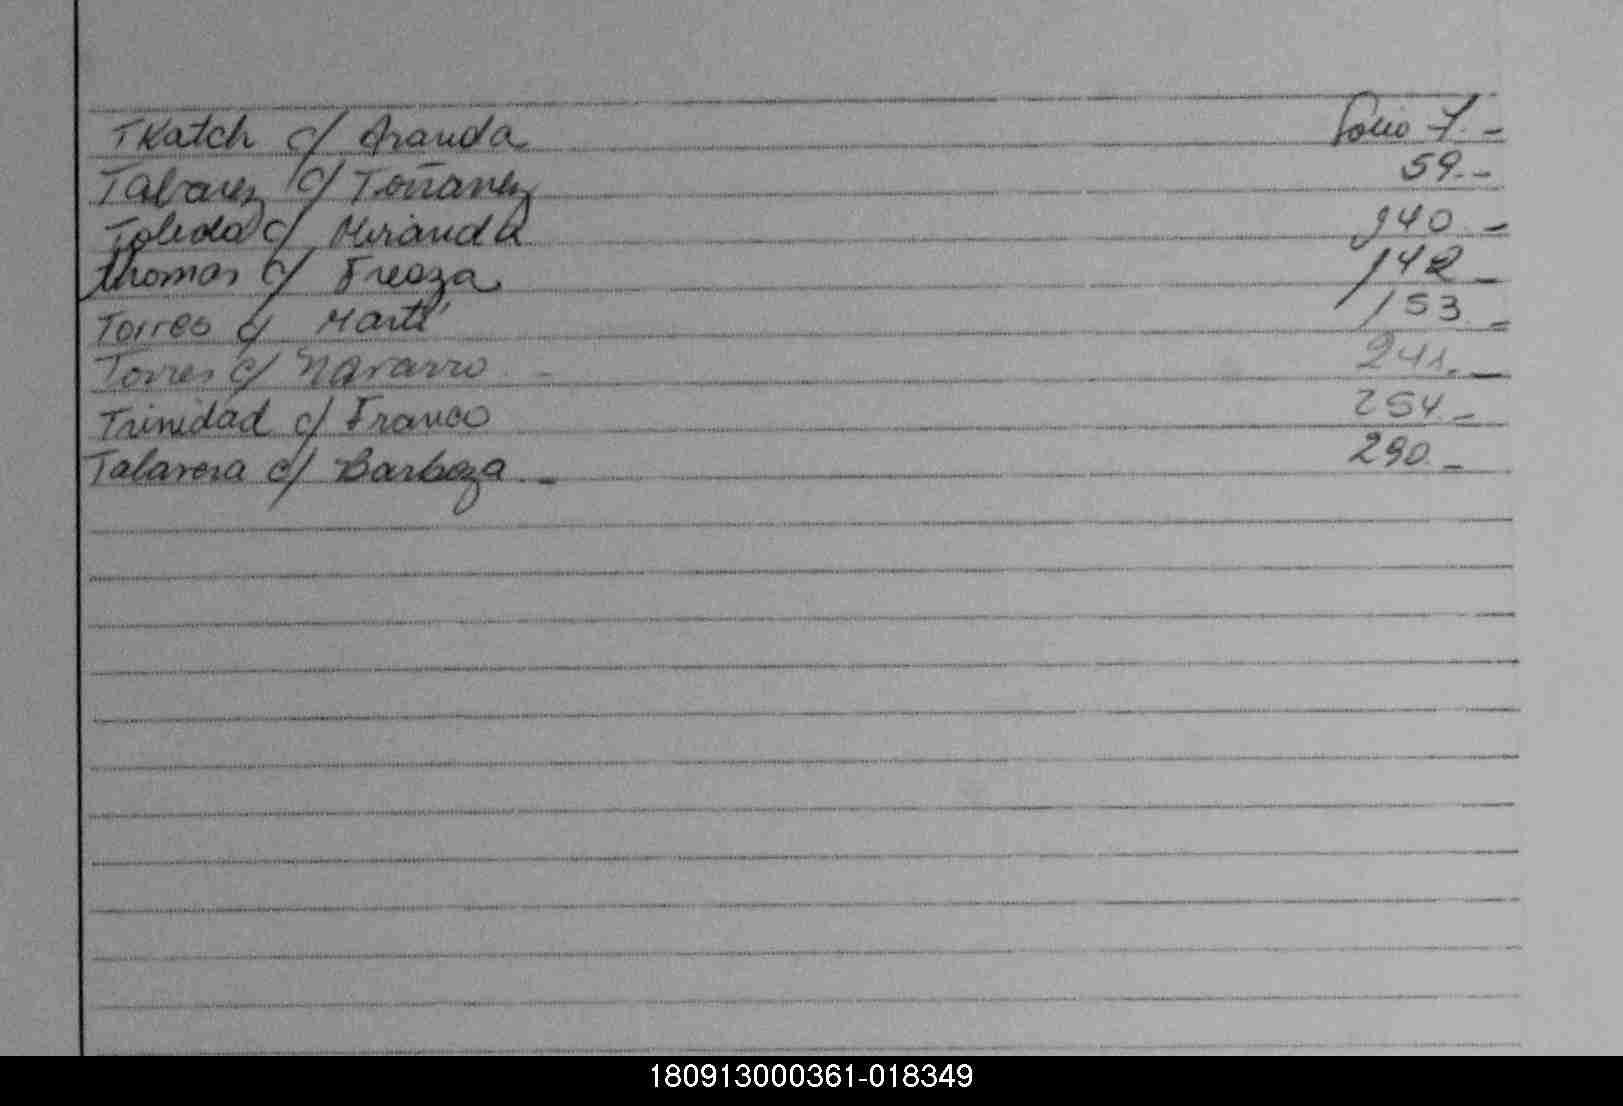 TKatch c/ Aranda Folio 7.-
Tabarez c/ Toñanez 59.-
Toledo c/ Miranda 140.-
Thomas c/ Freoza 142-
Torres c/ Martí 153.-
Torres c/ Navarro.- 241.-
Trinidad c/ Franco 254.-
Talavera c/ Barboza.- 290.-
180913000361-018349